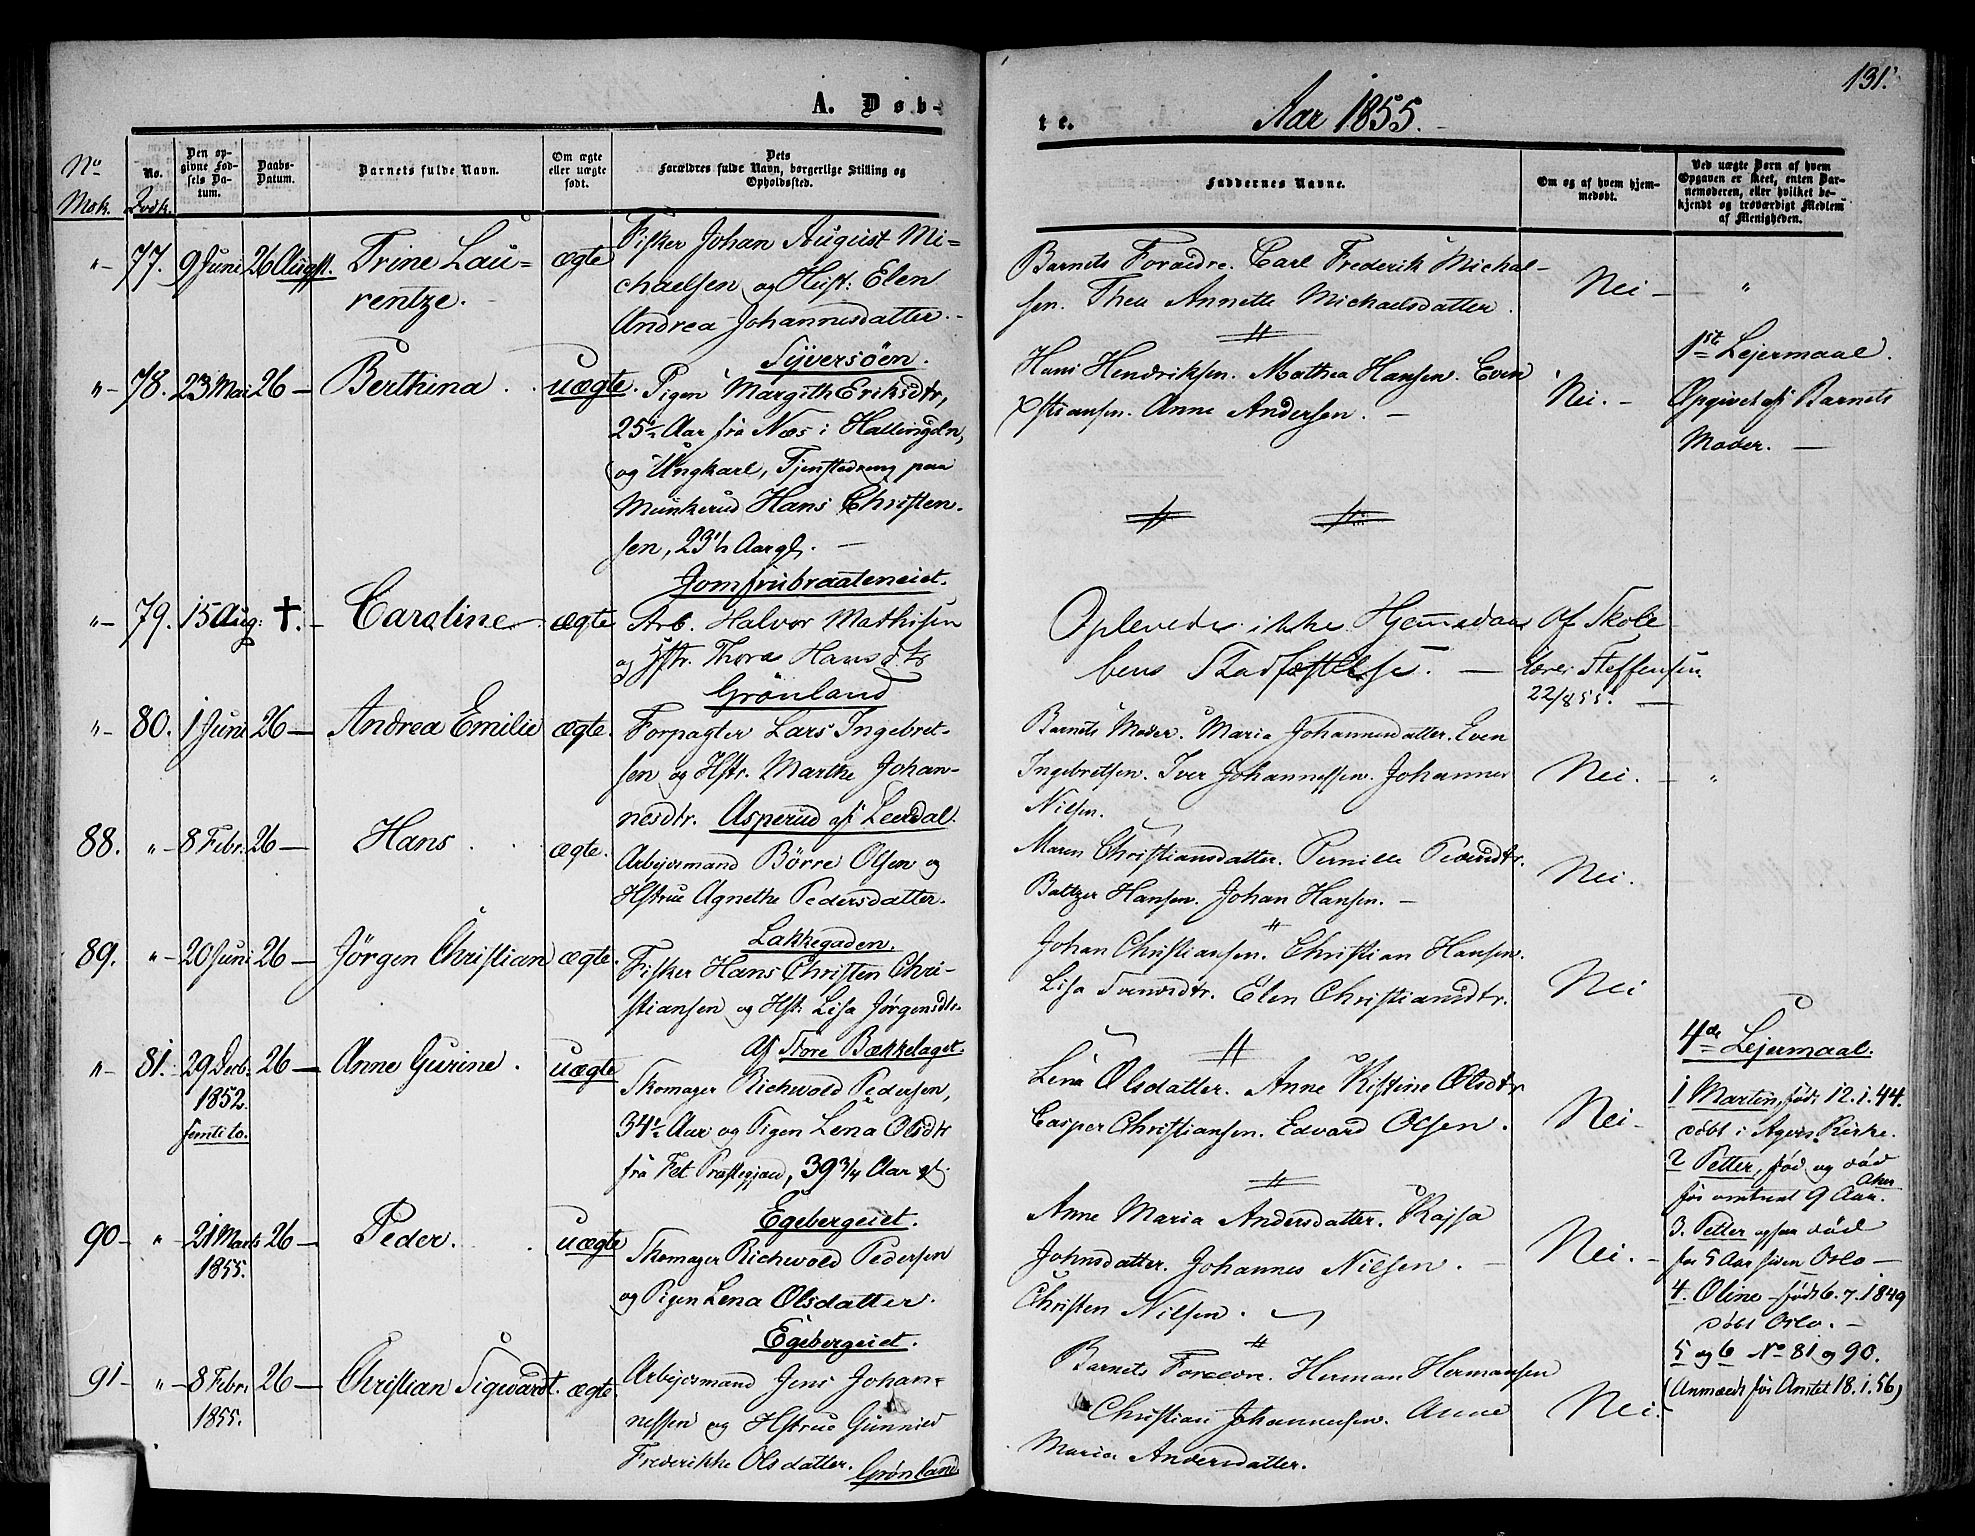 131.
A. Døb-
te.
Aar 1855.
No
Msk.
No.
Qvdk.
Den op-
givne Fød-
sels Da-
tum.
Daabs-
Datum.
Barnets fulde Navn.
Om ægte
eller uægte
født.
Dets
Forældres fulde Navn, borgerlige Stilling og
Opholdssted.
Faddernes Navne.
Om og af hvem hjem-
medøbt.
Ved uægte Børn af hvem
Opgaven er skeet, enten Bar-
nemoderen, eller hvilket be-
kjendt og troværdigt Medlem
af Menigheden.
"- 77. 9 Juni 26 Augst. Trine Lau=
rentze.
ægte
Fisker Johan August Mi=
chaelsen og Hust: Elen
Andrea Johannesdatter.
Syversøen.
Barnets Foraedre. Carl Frederik Michal-
sen. Thea Annette Michaelsdatter.
Nei - "
"- 78. 23 Mai 26 - Berthina. uægte.
Pigen Margith Eriksdtr,
25½ Aar fra Næs i Hallingdn,
og Ungkarl, Tjenstedreng paa
Munkerud Hans Christen-
sen, 23½ Aar gl. -
Jomfrubraateneiet.
Hans Hendriksen. Mathea Hansen. Even
Xstiansen. Anne Andersen. -
Nei. -
1ste Lejermaal.
Opgivet af Barnets
Moder. -
"- 79. 15 Aug: †. - Caroline ægte
Arb. Halvor Mathisen
og Hstr. Thora Hansdtr
Grönland
Oplevede ikke Hjemmedaa-
bens Stadfæstelse. -
Af Skole-
lærer Steffensen
22/8 55. -
"- 80. 1 Juni 26 - Andrea Emilie ægte.
Forpagter Lars Ingebret-
sen og Hstr. Marthe Johan-
nesdtr. Asperud af Leerdal.
Barnets Moder. Maria Johannesdatter. Even
Ingebretsen. Iver Johannessen. Johannes
Nilsen.
Nei. - "
88. "- 8 Febr. 26 - Hans. ægte.
Arbejdsmand Börre Olsen og
Hstrue Agnethe Pedersdatter.
Lakkegaden.
Maren Christiansdatter. Pernille
Baltzer Hansen. Johan Hansen. -
Nei.
89. "- 20 Juni 26 - Jørgen Christian ægte.
Fisker Hans Christen Chri-
stiansen og Hst: Lisa Jørgensdtr.
Af Store Bækkelaget.
Johan Christiansen. Christian Hansen.
Lisa Svendsdtr. Elen Christiansdtr.
Nei
"- 81. 29 Decb. 26 - Anne Gurine. uægte
1852.
femti to.
Skomager Richwold Pedersen,
34½ Aar og Pigen Lena Olsdtr
fra Fet Præstegjæld, 39¾ Aar gl.
Egebergeiet.
Lena Olsdatter. Anne Kistine Olsdtr
Casper Christiansen. Edvard Olsen.
Nei -
4de Lejermaal.
1 Martin, født 12.1.44.
døbt i Agers Kirke.
2 Petter, fød og død
for omtrent 9 Aar.
3. Petter ogsaa død
for 5 Aar siden Oslo -
4. Oline - født 6.7.1849
døbt Oslo. -
5 og 6 No 81 og 90.
(Anmeldt for Amtet 18.1.56)
90 - "- 21 Marts 26 - Peder. uægte
1855.
Skomager Richwold Pedersen
og Pigen Lena Olsdatter.
Egebergeiet.
Anne Maria Andersdatter. Kajsa
Johnsdatter. Johannes Nilsen. -
Christen Nilsen.
Nei. -
91 - "- 8 Febr. 26 - Christian Sigwardt. ægte
1855.
Arbejdsmand Jens Johan-
nessen og Hstrue Gunnild
Frederikke Olsdatter. Grønland
Barnets Foraedre. Herman Hermansen
Christian Johannesen. Anne
Maria Andersdatter.
Nei.